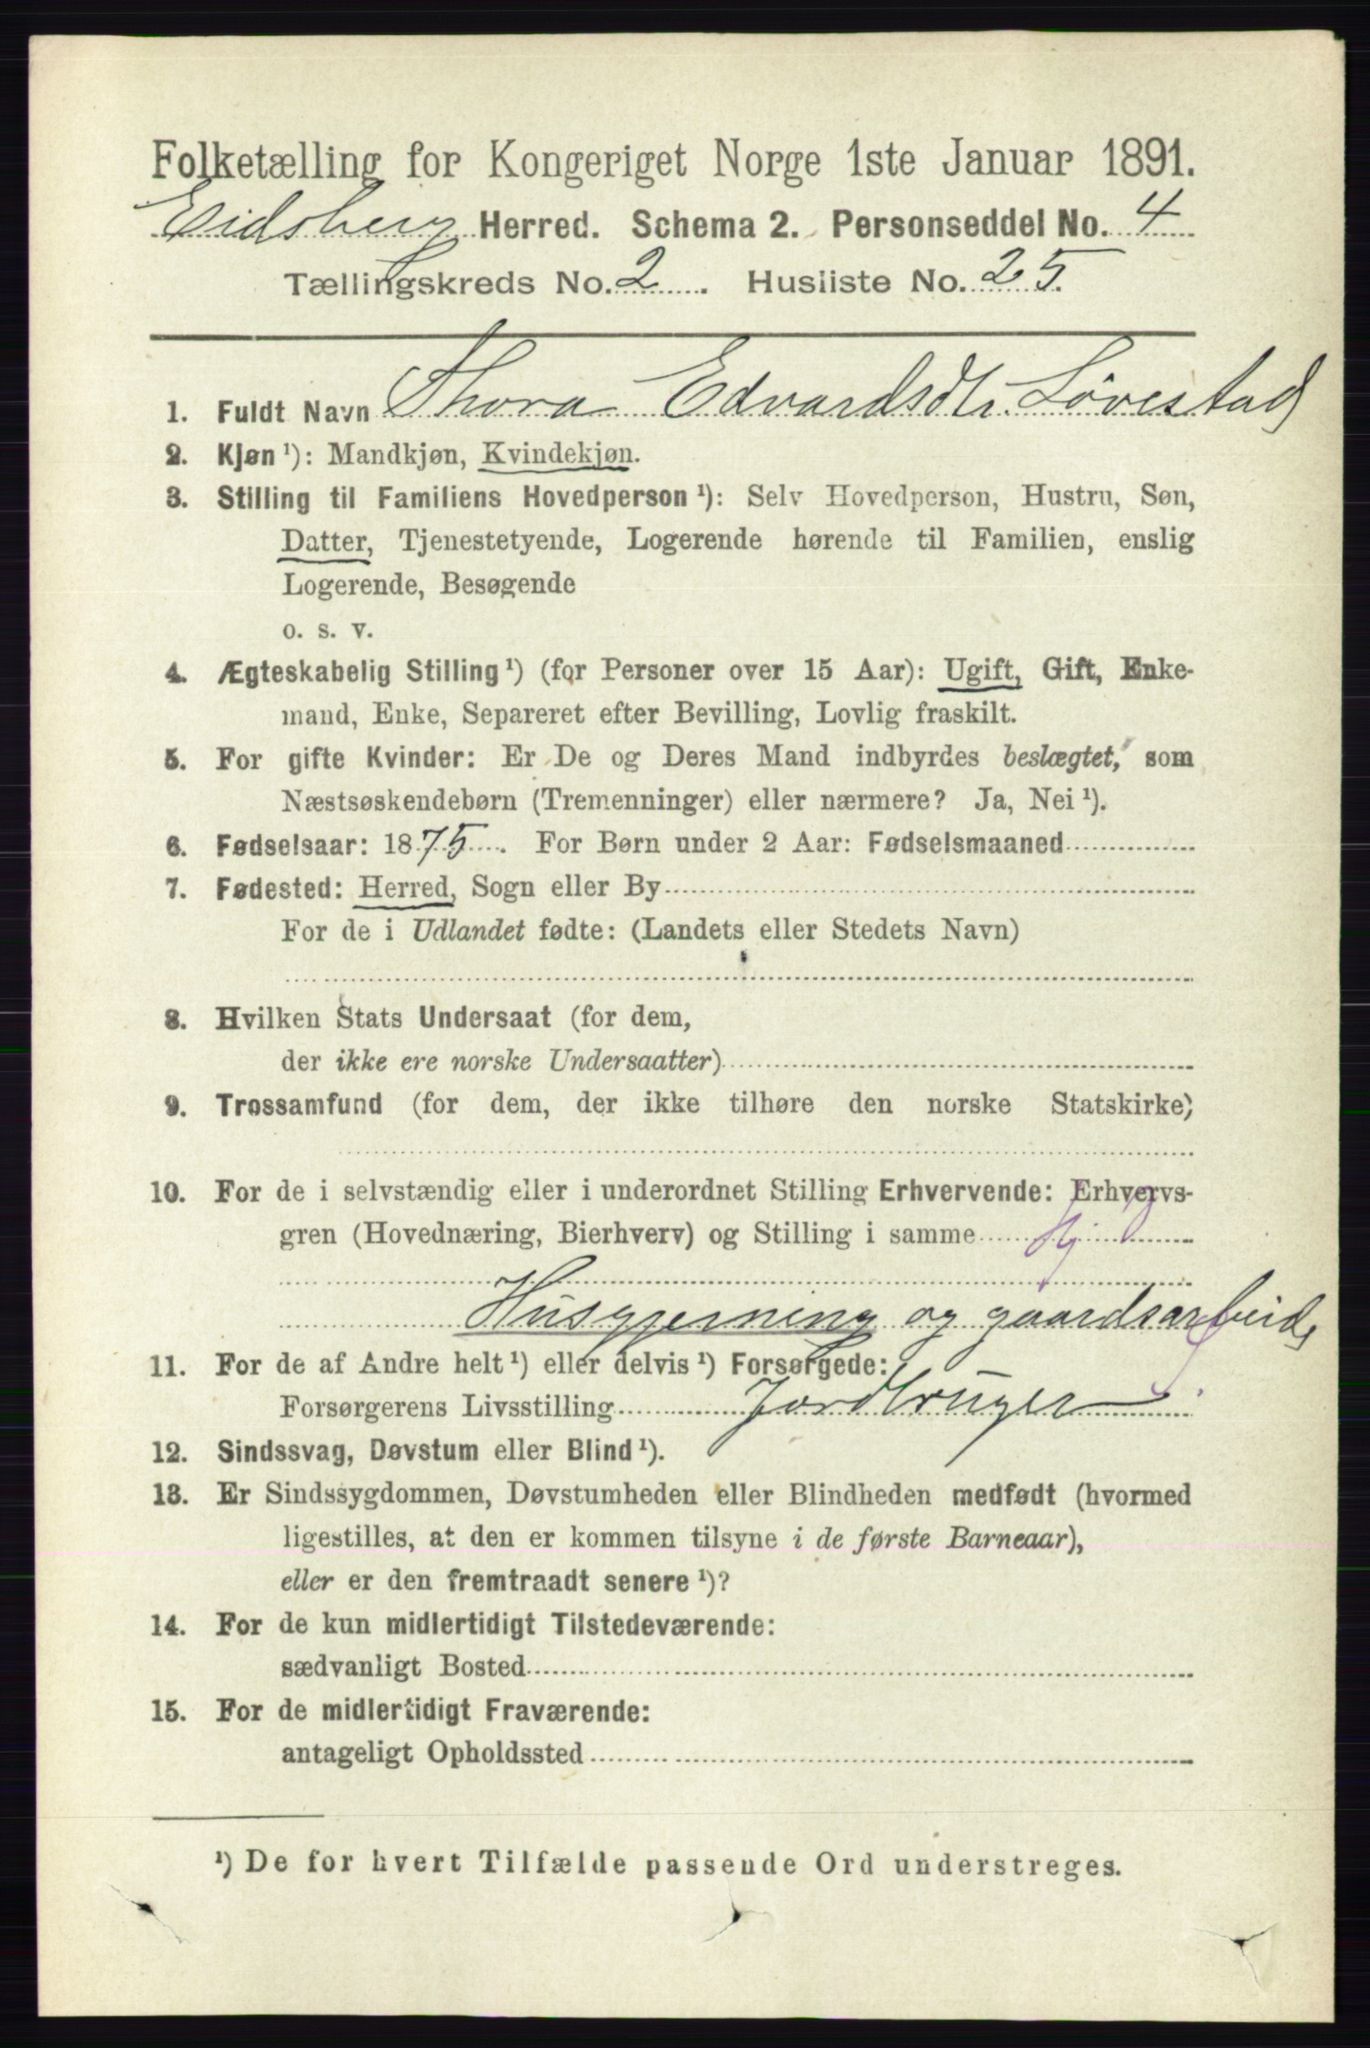 Folketælling for Kongeriget Norge 1ste Januar 1891.
Eidsberg Herred. Schema 2. Personseddel No. 4
Tællingskreds No. 2. Husliste No. 25.
1. Fuldt Navn Thora Edvardsdtr. Løvestad
2. Kjøn ¹): Mandkjøn, Kvindekjøn.
3. Stilling til Familiens Hovedperson ¹): Selv Hovedperson, Hustru, Søn,
Datter, Tjenestetyende, Logerende hørende til Familien, enslig
Logerende, Besøgende
o. s. v.
4. Ægteskabelig Stilling ¹) (for Personer over 15 Aar): Ugift, Gift, Enke-
mand, Enke, Separeret efter Bevilling, Lovlig fraskilt.
5. For gifte Kvinder: Er De og Deres Mand indbyrdes beslægtet, som
Næstsøskendebørn (Tremenninger) eller nærmere? Ja, Nei ¹).
6. Fødselsaar: 1875. For Børn under 2 Aar: Fødselsmaaned
7. Fødested: Herred, Sogn eller By
For de i Udlandet fødte: (Landets eller Stedets Navn)
8. Hvilken Stats Undersaat (for dem,
der ikke ere norske Undersaatter)
9. Trossamfund (for dem, der ikke tilhøre den norske Statskirke)
10. For de i selvstændig eller i underordnet Stilling Erhvervende: Erhvervs-
gren (Hovednæring, Bierhverv) og Stilling i samme
Husgjerning og gaardsarbeide
11. For de af Andre helt ¹) eller delvis ¹) Forsørgede:
Forsørgerens Livsstilling Jordbruger
12. Sindssvag, Døvstum eller Blind ¹).
13. Er Sindssygdommen, Døvstumheden eller Blindheden medfødt (hvormed
ligestilles, at den er kommen tilsyne i de første Barneaar),
eller er den fremtraadt senere ¹)?
14. For de kun midlertidigt Tilstedeværende:
sædvanligt Bosted
15. For de midlertidigt Fraværende:
antageligt Opholdssted
¹) De for hvert Tilfælde passende Ord understreges.